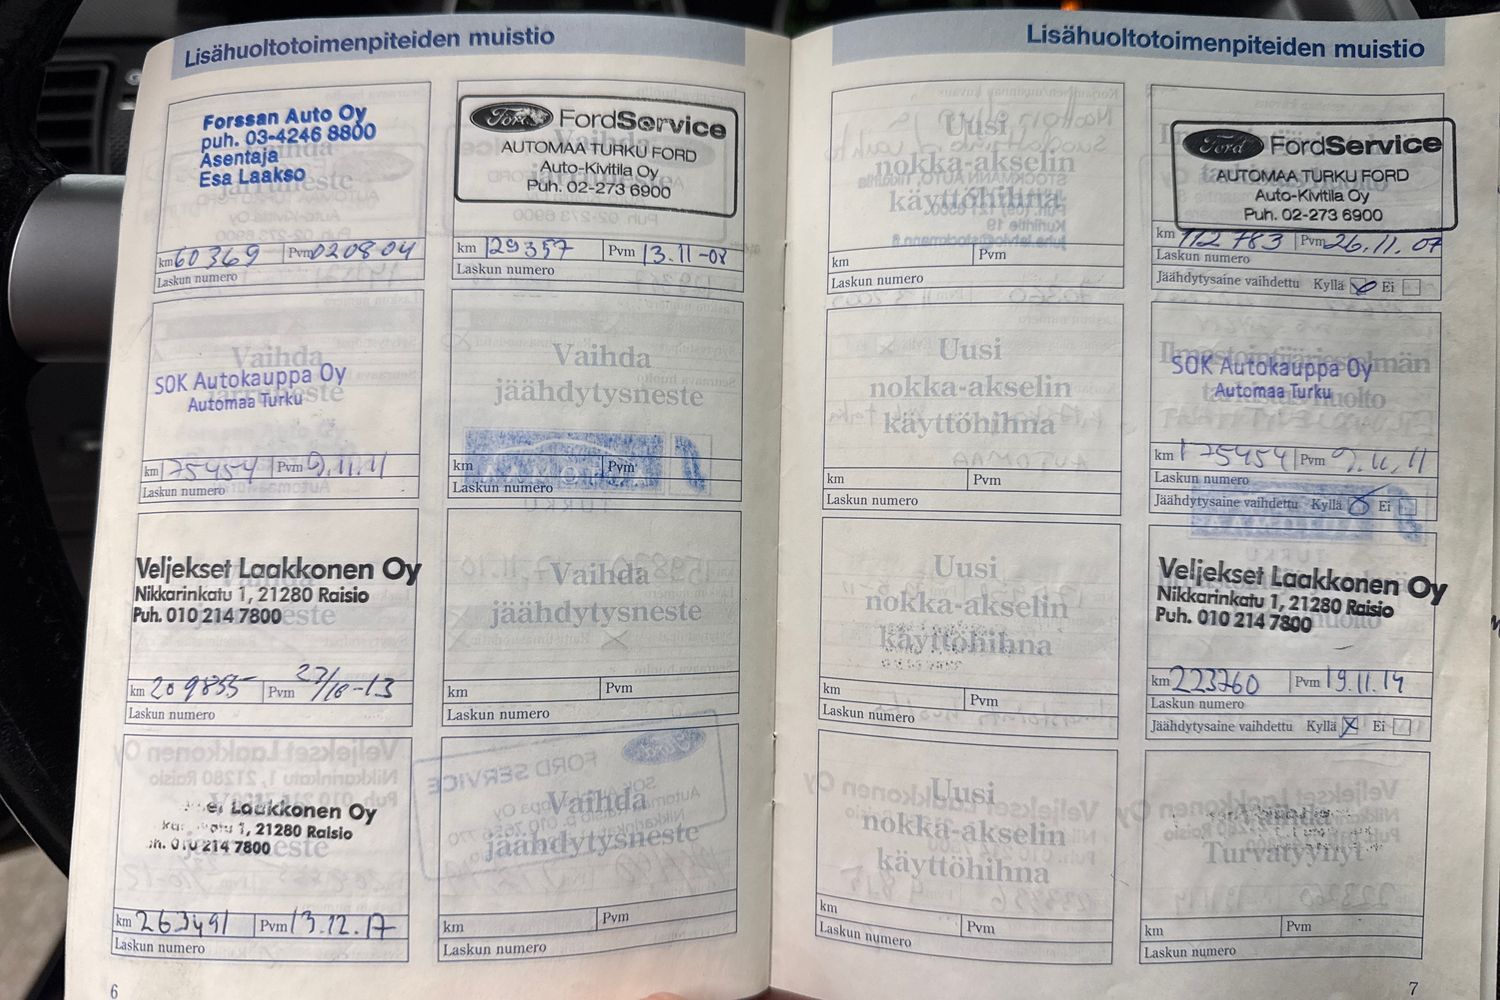 Lisähuoltotoimenpiteiden muistio
Forssan Auto Oy
puh. 03-4246 8800
Asentaja
Esa Laakso
jarruneste
km 60369 Pvm 020804
Laskun numero
Vaihda
jarruneste
SOK Autokauppa Oy
Automaa Turku
km 175454 Pvm 9.11.11
Laskun numero
Veljekset Laakkonen Oy
Nikkarinkatu 1, 21280 Raisio
Puh. 010 214 7800
km 209855 Pvm 27/10-13
Laskun numero
Laakkonen Oy
1, 21280 Raisio
010 214 7800
km 263491 Pvm 13.12.17
Laskun numero
Ford FordService
AUTOMAA TURKU FORD
Auto-Kivitila Oy
Puh. 02-273 6900
km 129357 Pvm 13.11-08
Laskun numero
Vaihda
jäähdytysneste
km Pvm
Laskun numero
Vaihda
jäähdytysneste
km Pvm
Laskun numero
Vaihda
jäähdytysneste
km Pvm
Laskun numero
6
Lisähuoltotoimenpiteiden muistio
Uusi
nokka-akselin
käyttöhihna
km Pvm
Laskun numero
Uusi
nokka-akselin
käyttöhihna
km Pvm
Laskun numero
Uusi
nokka-akselin
käyttöhihna
km Pvm
Laskun numero
Uusi
nokka-akselin
käyttöhihna
km Pvm
Laskun numero
Ford FordService
AUTOMAA TURKU FORD
Auto-Kivitila Oy
Puh. 02-273 6900
km 112783 Pvm 26.11.07
Laskun numero
Jäähdytysaine vaihdettu Kyllä Ei
Ilmastointijärjestelmän
SOK Autokauppa Oy
Automaa Turku
km 175454 Pvm 9.11.11
Laskun numero
Jäähdytysaine vaihdettu Kyllä Ei
Veljekset Laakkonen Oy
Nikkarinkatu 1, 21280 Raisio
Puh. 010 214 7800
km 223760 Pvm 19.11.14
Laskun numero
Jäähdytysaine vaihdettu Kyllä Ei
Turvatyynyt
km Pvm
Laskun numero
7